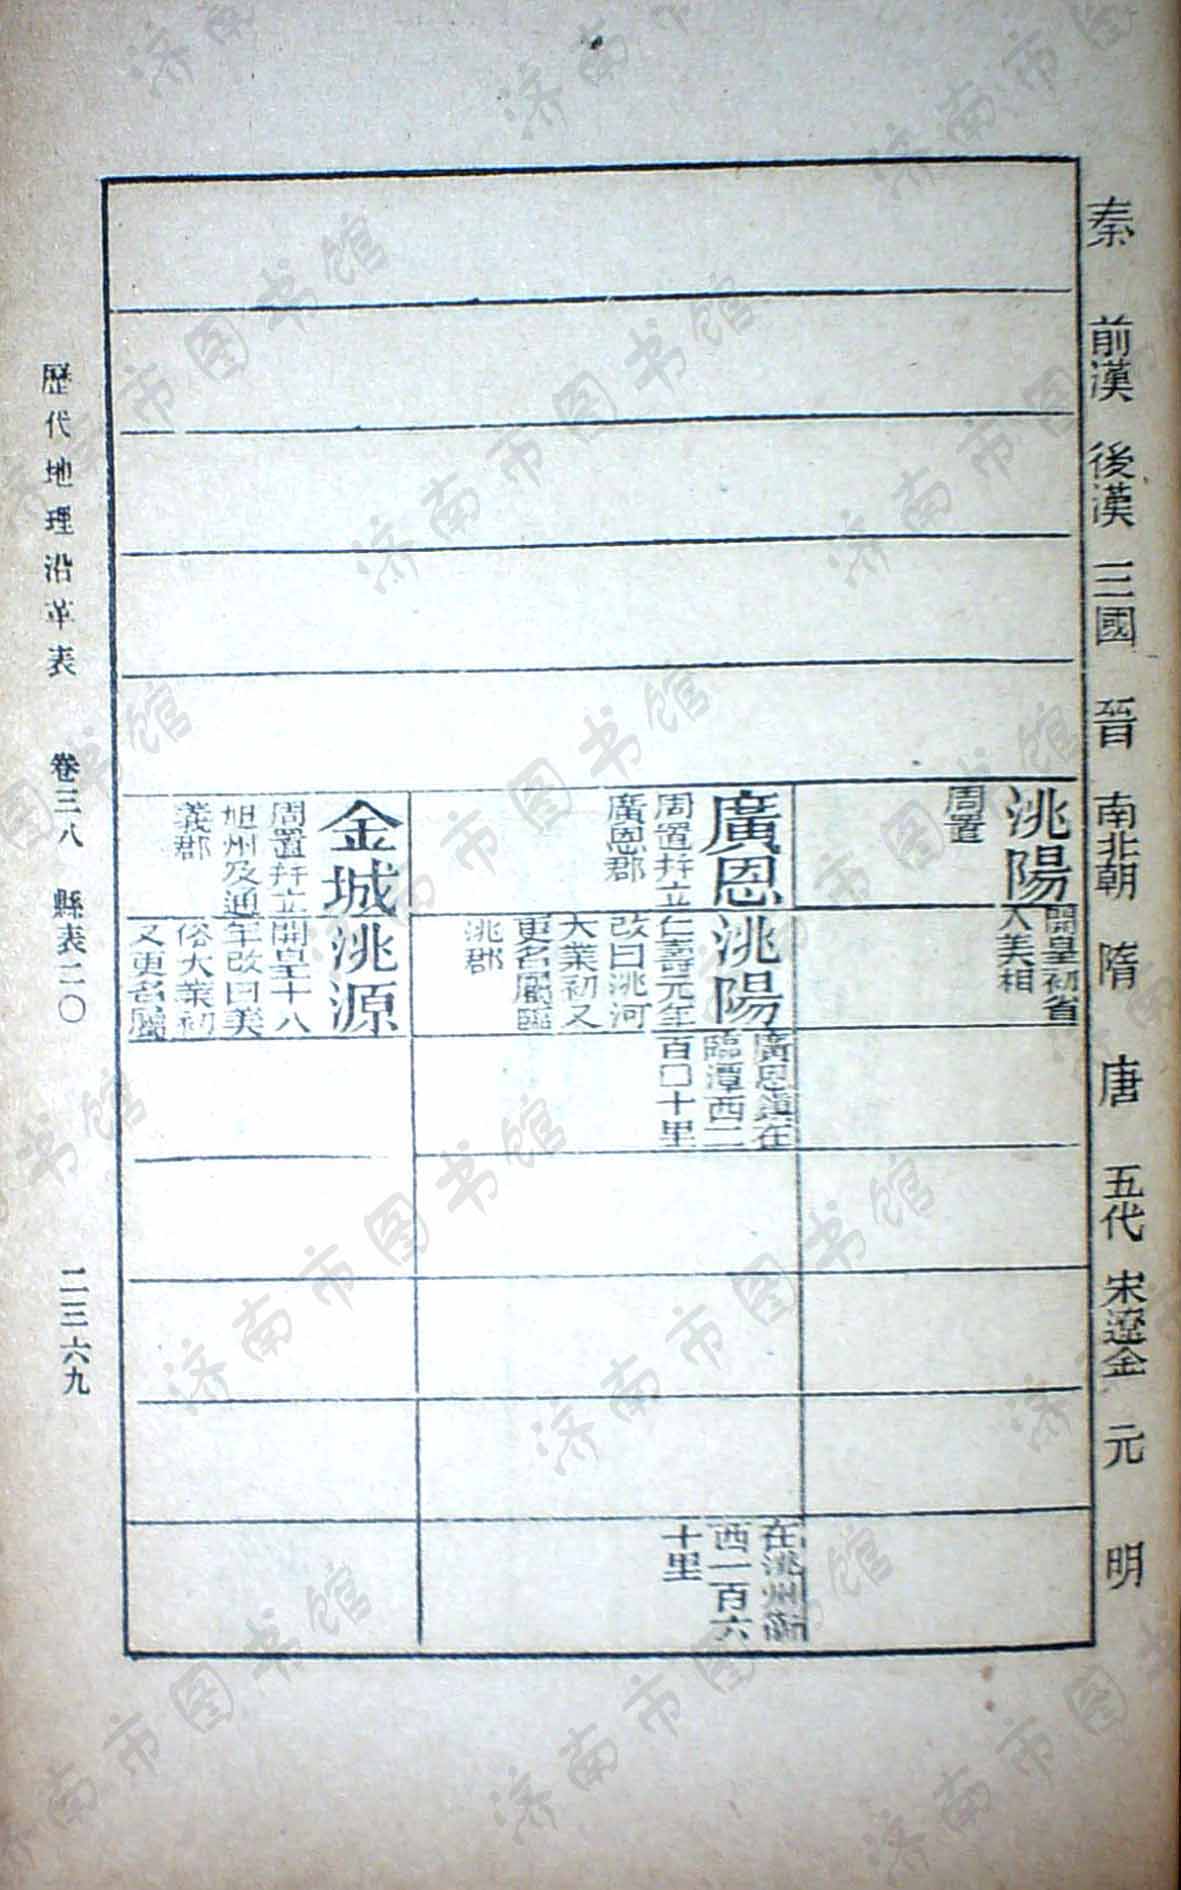 秦 前漢 後漢 三國 晉 南北朝 隋 唐 五代 宋遼金 元 明
洮陽
周置
開皇初省
入美相
廣恩
周置幷立
廣恩郡
洮陽
仁壽元年
改曰洮河
大業初又
更名屬臨
洮郡
廣恩鎮在
臨潭西二
百□十里
在洮州衛
西一百六
十里
金城
周置幷立
旭州及通
義郡
洮源
開皇十八
年改曰美
俗大業初
又更名屬
歷代地理沿革表 卷三八 縣表二〇 二三六九
济南市图书馆